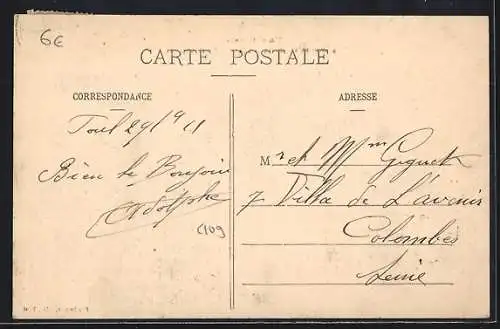 6€
CARTE POSTALE
CORRESPONDANCE
ADRESSE
Toul 29/9 11
Bien le Bonjour
Adolphe
C109
Mr et Mme Giguet
7 Villa de L'avenir
Colombes
Seine